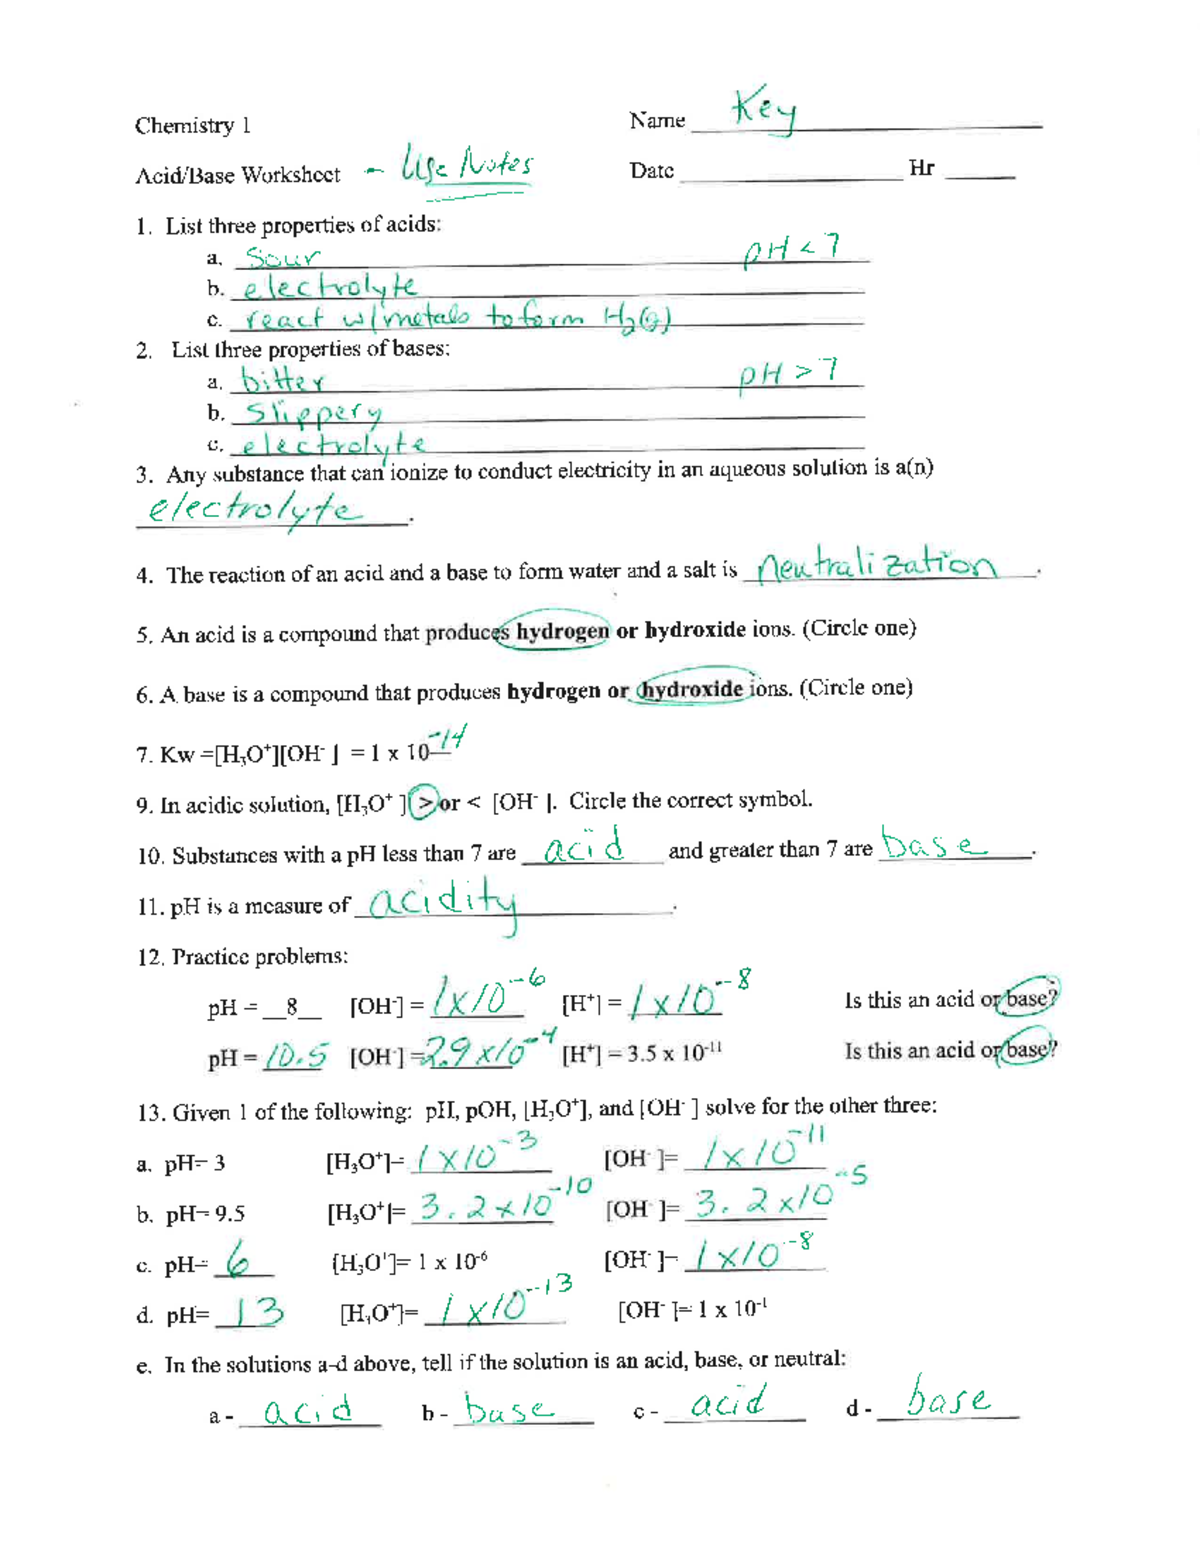 Chemistry 1 Name Key
Acid/Base Worksheet - Use Notes Date ____ Hr ____
1. List three properties of acids:
a. sour pH < 7
b. electrolyte
c. react w/metals to form H₂(g)
2. List three properties of bases:
a. bitter pH > 7
b. slippery
c. electrolyte
3. Any substance that can ionize to conduct electricity in an aqueous solution is a(n)
electrolyte.
4. The reaction of an acid and a base to form water and a salt is neutralization.
5. An acid is a compound that produces hydrogen or hydroxide ions. (Circle one)
6. A base is a compound that produces hydrogen or hydroxide ions. (Circle one)
7. Kw =[H₃O⁺][OH⁻ ] = 1 x 10⁻¹⁴
9. In acidic solution, [H₃O⁺ ] > or < [OH⁻ ]. Circle the correct symbol.
10. Substances with a pH less than 7 are acid and greater than 7 are base.
11. pH is a measure of acidity.
12. Practice problems:
pH = 8 [OH⁻] = 1x10⁻⁶ [H⁺] = 1x10⁻⁸ Is this an acid or base?
pH = 10.5 [OH⁻] = 2.9x10⁻⁴ [H⁺] = 3.5 x 10⁻¹¹ Is this an acid or base?
13. Given 1 of the following: pH, pOH, [H₃O⁺], and [OH⁻ ] solve for the other three:
a. pH= 3 [H₃O⁺]= 1x10⁻³ [OH⁻ ]= 1x10⁻¹¹
b. pH= 9.5 [H₃O⁺]= 3.2x10⁻¹⁰ [OH⁻ ]= 3.2x10⁻⁵
c. pH= 6 [H₃O⁺]= 1 x 10⁻⁶ [OH⁻ ]= 1x10⁻⁸
d. pH= 13 [H₃O⁺]= 1x10⁻¹³ [OH⁻ ]= 1 x 10⁻¹
e. In the solutions a-d above, tell if the solution is an acid, base, or neutral:
a - acid b - base c - acid d - base